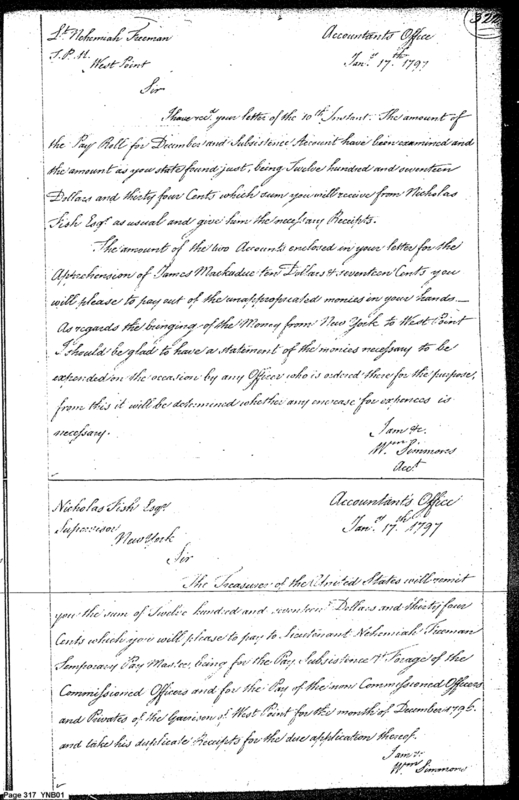 322
Lt. Nehemiah Freeman
T. P. M.
West Point
Accountants Office
Jany. 17th. 1797
Sir
I have recd. your letter of the 10th. Instant. The amount of
the Pay Roll for December and Subsistence Account have been examined and
the amount as you state found just, being Twelve hundred and seventeen
Dollars and thirty four Cents which sum you will receive from Nicholas
Fish Esqr. as usual and give him the necessary Receipts.
The amount of the two Accounts enclosed in your letter for the
Apprehension of James Mackaduc ten Dollars & seventeen Cents you
will please to pay out of the unappropreated monies in your hands—
As regards the bringing of the Money from New York to West Point
I should be glad to have a statement of the monies necessary to be
expended on the occasion by any Officer who is ordered there for the purpose,
from this it will be determined whether any encrease for expences is
necessary.
I am &c.
Wm. Simmons
Acct.
Nicholas Fish Esqr.
Supervisor
New York
Accountant's Office
Jany. 17th. 1797
Sir
The Treasurer of the United States will remit
you the sum of Twelve hundred and seventeen Dollars and thirty four
Cents which you will please to pay to Lieutenant Nehemiah Freeman
Temporary Pay Master, being for the Pay, Subsistence & Forage of the
Commissioned Officers and for the Pay of the non Commissioned Officers
and Privates of the Garrison of West Point for the month of December 1796.
and take his duplicate Receipts for the due application thereof.
I am &c
Wm. Simmons
Page 317 YNB01